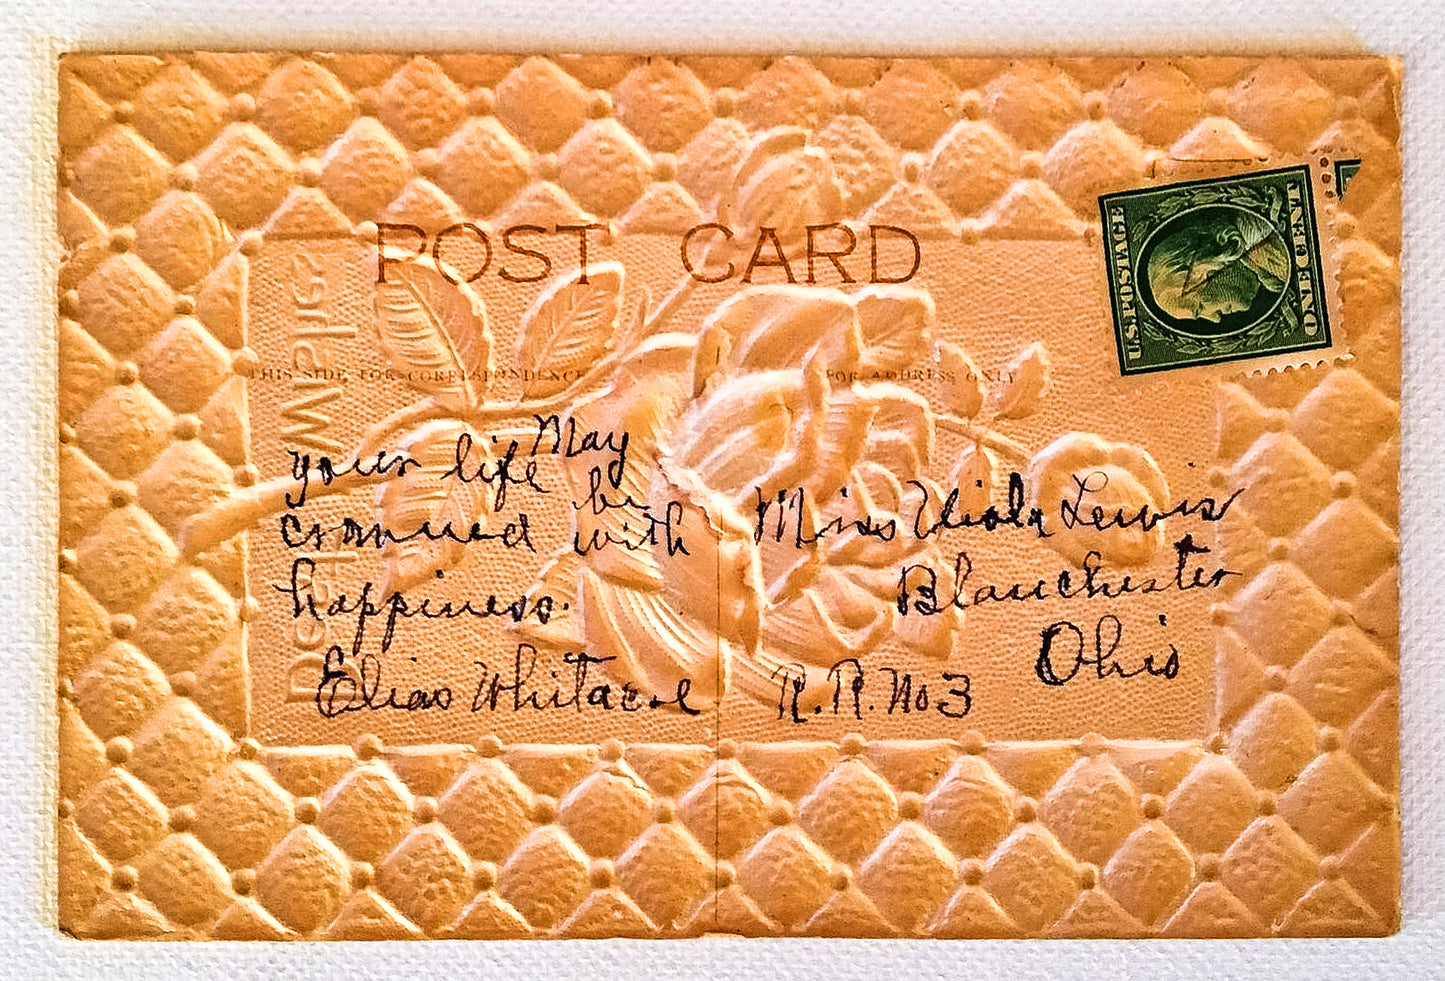 POST CARD
THIS SIDE FOR CORRESPONDENCE
FOR ADDRESS ONLY
U.S. POSTAGE
ONE CENT
May
your life be
crowned with
happiness.
Elias Whitacre
Miss Viola Lewis
Blanchester
Ohio
R. R. No 3